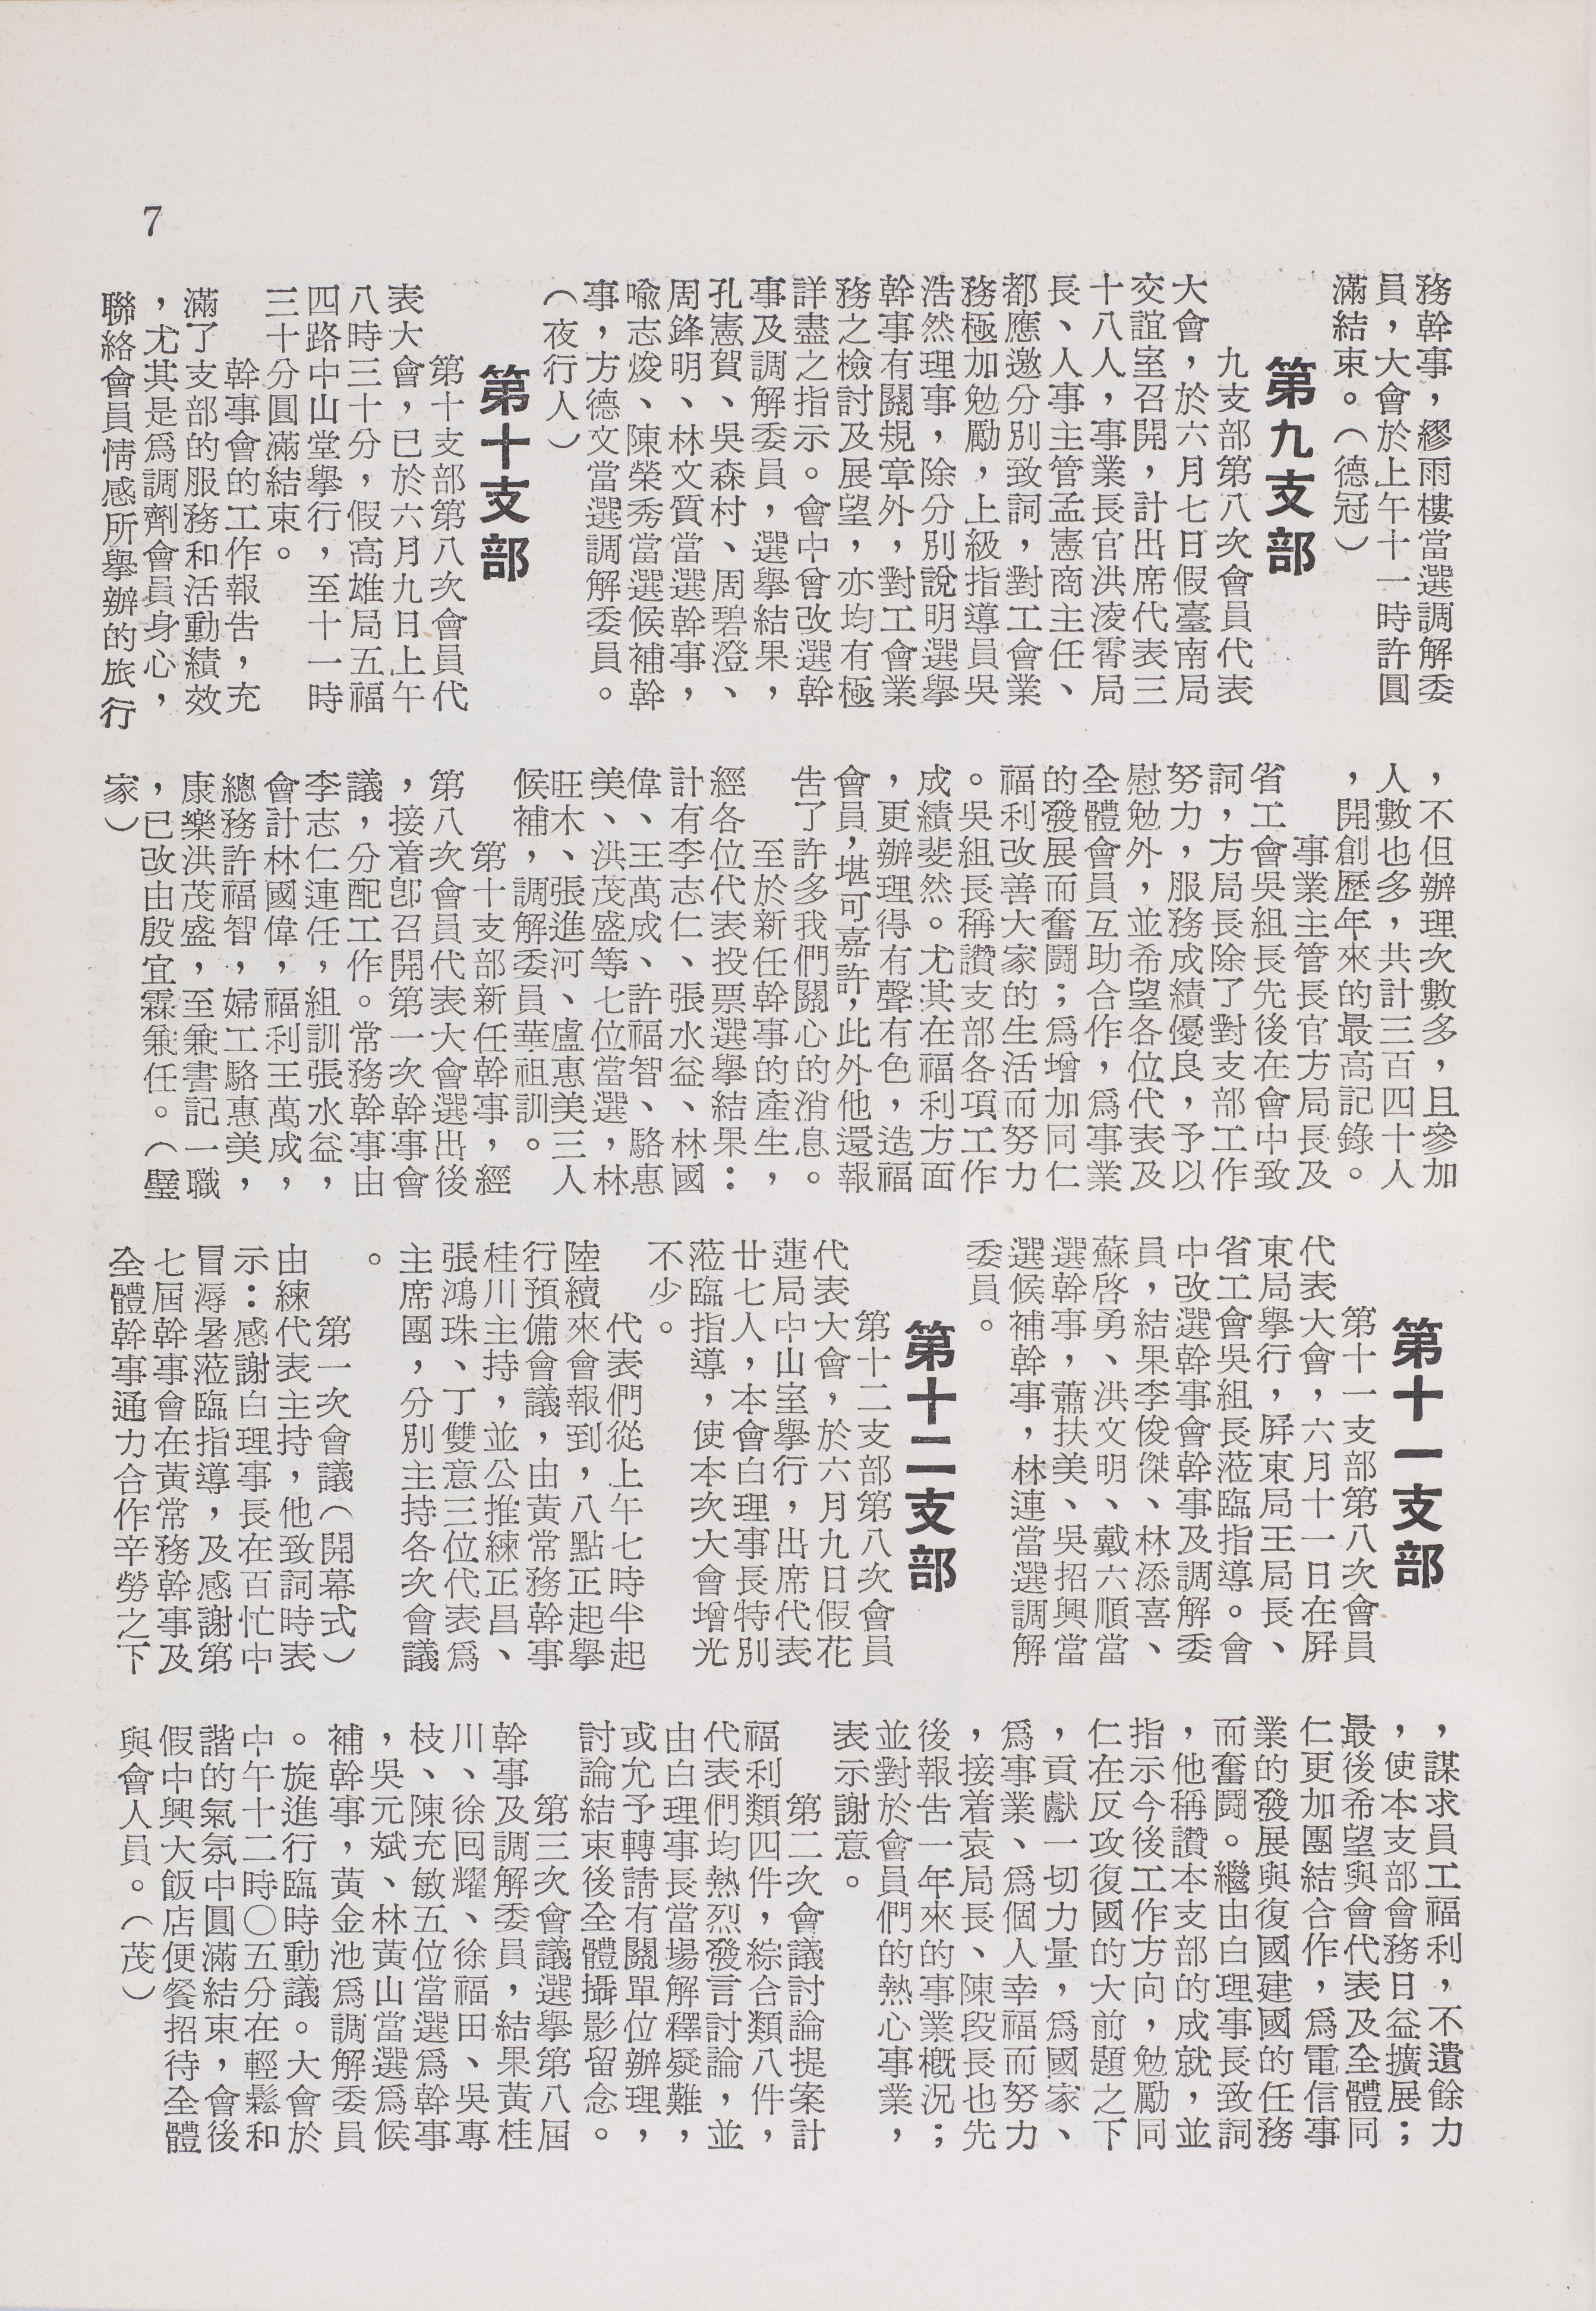 7
務幹事，繆雨樓當選調解委
員，大會於上午十一時許圓
滿結束。（德冠）
第九支部
九支部第八次會員代表
大會，於六月七日假臺南局
交誼室召開，計出席代表三
十八人，事業長官洪淩霄局
長、人事主管孟憲商主任、
都應邀分別致詞，對工會業
務極加勉勵，上級指導員吳
浩然理事，除分別說明選舉
幹事有關規章外，對工會業
務之檢討及展望，亦均有極
詳盡之指示。會中曾改選幹
事及調解委員，選舉結果，
孔憲賀、吳森村、周碧澄、
周鋒明、林文質當選幹事，
喩志焌、陳榮秀當選候補幹
事，方德文當選調解委員。
（夜行人）
第十支部
第十支部第八次會員代
表大會，已於六月九日上午
八時三十分，假高雄局五福
四路中山堂舉行，至十一時
三十分圓滿結束。
幹事會的工作報告，充
滿了支部的服務和活動績效
，尤其是爲調劑會員身心，
聯絡會員情感所舉辦的旅行
，不但辦理次數多，且參加
人數也多，共計三百四十人
，開創歷年來的最高記錄。
事業主管長官方局長及
省工會吳組長先後在會中致
詞，方局長除了對支部工作
努力，服務成績優良，予以
慰勉外，並希望各位代表及
全體會員互助合作，爲事業
的發展而奮鬪；爲增加同仁
福利改善大家的生活而努力
。吳組長稱讚支部各項工作
成績斐然。尤其在福利方面
，更辦理得有聲有色，造福
會員，堪可嘉許，此外他還報
告了許多我們關心的消息。
至於新任幹事的產生，
經各位代表投票選舉結果：
計有李志仁、張水益、林國
偉、王萬成、許福智、駱惠
美、洪茂盛等七位當選，林
旺木、張進河、盧惠美三人
候補，調解委員華祖訓。
第十支部新任幹事，經
第八次會員代表大會選出後
，接着卽召開第一次幹事會
議，分配工作。常務幹事由
李志仁連任，組訓張水益，
會計林國偉，福利王萬成，
總務許福智，婦工駱惠美，
康樂洪茂盛，至兼書記一職
，已改由殷宜霖兼任。（璧
家）
第十一支部
第十一支部第八次會員
代表大會，六月十一日在屛
東局舉行，屛東局王局長、
省工會吳組長蒞臨指導。會
中改選幹事會幹事及調解委
員，結果李俊傑、林添喜、
蘇啓勇、洪文明、戴六順當
選幹事，蕭扶美、吳招興當
選候補幹事，林連當選調解
委員。
第十二支部
第十二支部第八次會員
代表大會，於六月九日假花
蓮局中山室舉行，出席代表
廿七人，本會白理事長特別
蒞臨指導，使本次大會增光
不少。
代表們從上午七時半起
陸續來會報到，八點正起舉
行預備會議，由黃常務幹事
桂川主持，並公推練正昌、
張鴻珠、丁雙意三位代表爲
主席團，分別主持各次會議
。
第一次會議（開幕式）
由練代表主持，他致詞時表
示：感謝白理事長在百忙中
冒溽暑蒞臨指導，及感謝第
七屆幹事會在黃常務幹事及
全體幹事通力合作辛勞之下
，謀求員工福利，不遺餘力
，使本支部會務日益擴展；
最後希望與會代表及全體同
仁更加團結合作，爲電信事
業的發展與復國建國的任務
而奮鬪。繼由白理事長致詞
，他稱讚本支部的成就，並
指示今後工作方向，勉勵同
仁在反攻復國的大前題之下
，貢獻一切力量，爲國家、
爲事業、爲個人幸福而努力
，接着袁局長、陳段長也先
後報告一年來的事業槪況；
並對於會員們的熱心事業，
表示謝意。
第二次會議討論提案計
福利類四件，綜合類八件，
代表們均熱烈發言討論，並
由白理事長當場解釋疑難，
或允予轉請有關單位辦理，
討論結束後全體攝影留念。
第三次會議選舉第八屆
幹事及調解委員，結果黃桂
川、徐回耀、徐福田、吳專
枝、陳充敏五位當選爲幹事
，吳元斌、林黃山當選爲候
補幹事，黃金池爲調解委員
。旋進行臨時動議。大會於
中午十二時〇五分在輕鬆和
諧的氣氛中圓滿結束，會後
假中興大飯店便餐招待全體
與會人員。（茂）